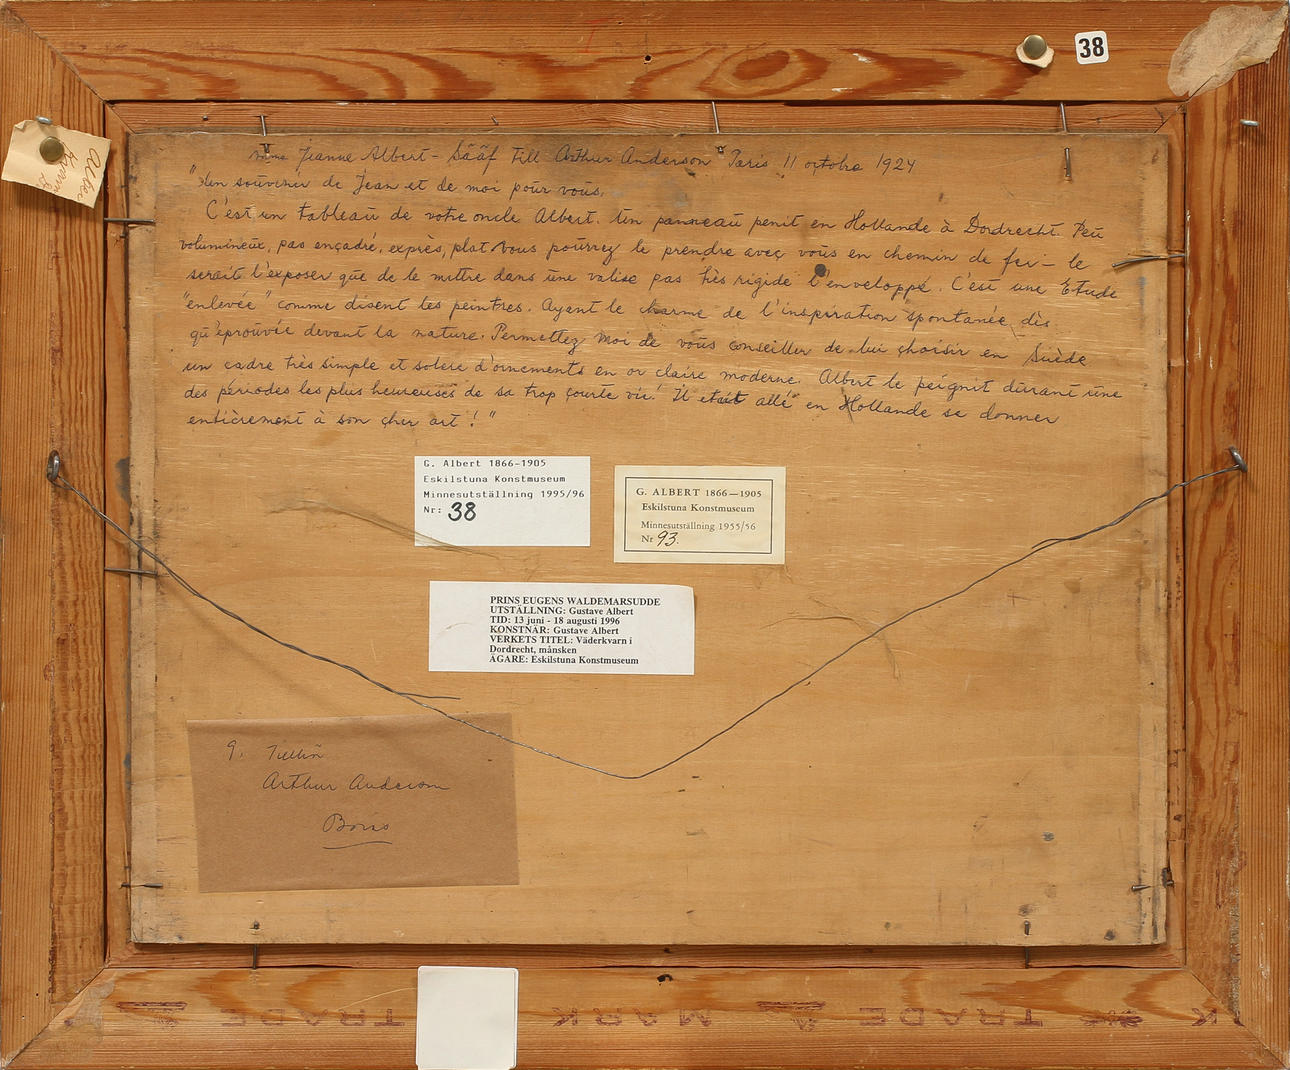 38
Mme Jeanne Albert-Sääf Till Arthur Anderson Paris 11 octobre 1924
"Un souvenir de Jean et de moi pour vous.
C'est un tableau de votre oncle Albert. Un panneau penit en Hollande à Dordrecht. Peu
volumineux, pas ençadré, exprès, plat vous pourrez le prendre aveç vous en chemin de fer - le
serait l'exposer que de le mettre dans une valise pas très rigide l'enveloppe. C'est une Etude
"enlevée" comme disent les peintres. Ayant le charme de l'inspiration spontanée, dès
qu'éprouvée devant la nature. Permettez moi de vous conseiller de lui choisir en Suède
un cadre très simple et sobre d'ornements en or claire moderne. Albert le peignit durant une
des périodes les plus heureuses de sa trop courte vie! Il etait allé en Hollande se donner
entièrement à son cher art!"
G. Albert 1866-1905
Eskilstuna Konstmuseum
Minnesutställning 1995/96
Nr: 38
G. ALBERT 1866—1905
Eskilstuna Konstmuseum
Minnesutställning 1955/56
Nr 93.
PRINS EUGENS WALDEMARSUDDE
UTSTÄLLNING: Gustave Albert
TID: 13 juni - 18 augusti 1996
KONSTNÄR: Gustave Albert
VERKETS TITEL: Väderkvarn i
Dordrecht, månsken
ÄGARE: Eskilstuna Konstmuseum
9.
Arthur Anderson
TRADE MARK TRADE